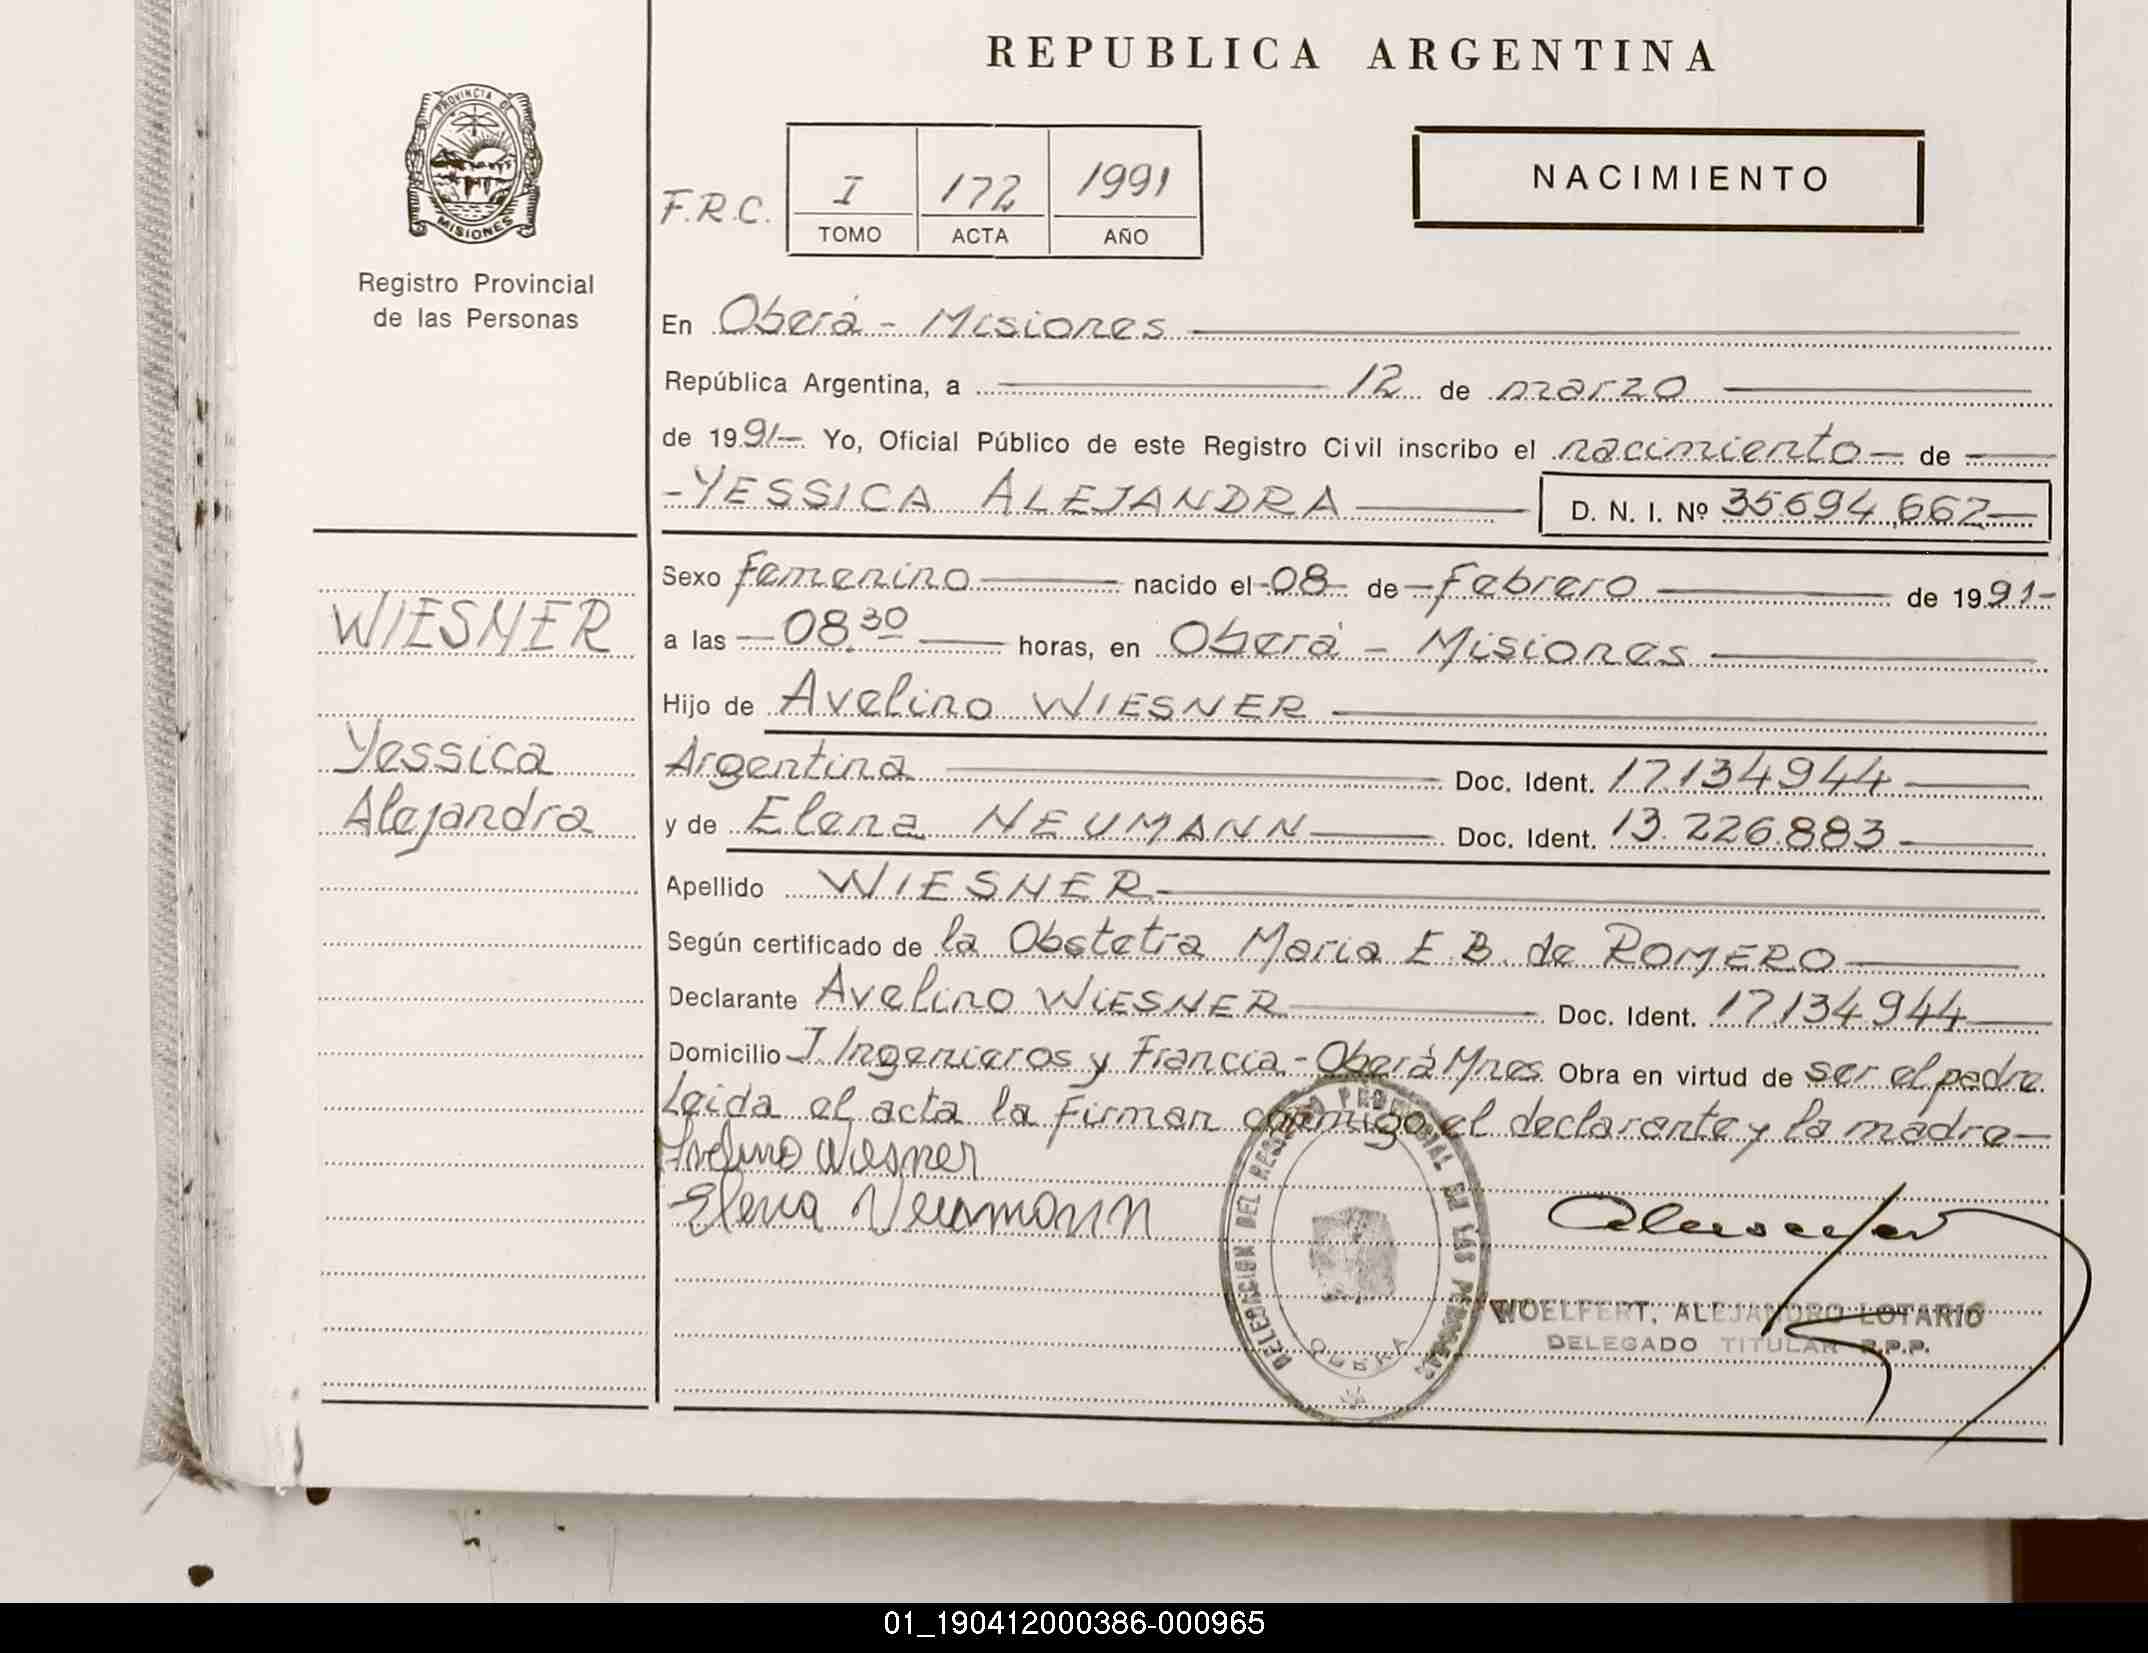 REPUBLICA ARGENTINA
PROVINCIA DE
MISIONES
Registro Provincial
de las Personas
F.R.C.
I 172 1991
TOMO ACTA AÑO
NACIMIENTO
En Oberá - Misiones
República Argentina, a 12 de marzo
de 1991 Yo, Oficial Público de este Registro Civil inscribo el nacimiento de
YESSICA ALEJANDRA D. N. I. Nº 35.694.662
Sexo Femenino nacido el 08 de Febrero de 1991
a las 08.30 horas, en Oberá - Misiones
Hijo de Avelino WIESNER
Argentina Doc. Ident. 17.134944
y de Elena NEUMANN Doc. Ident. 13.226.883
Apellido WIESNER
Según certificado de la Obstetra Maria E.B. de ROMERO
Declarante Avelino WIESNER Doc. Ident. 17.134944
Domicilio J. Ingenieros y Francia - Oberá Mnes Obra en virtud de ser el padre
Leida el acta la firman conmigo el declarante y la madre
Avelino Wiesner
Elena Neumann
WIESNER
Yessica
Alejandra
DELEGACION DEL REGISTRO PROVINCIAL DE LAS PERSONAS
OBERA
WOELFERT, ALEJANDRO LOTARIO
DELEGADO TITULAR R.P.P.
01_190412000386-000965